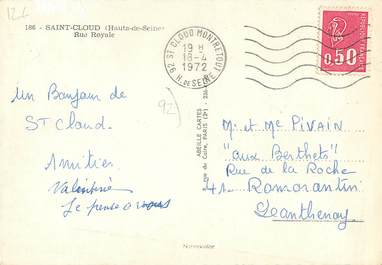 124
186 - SAINT-CLOUD (Hauts-de-Seine)
Rue Royale
92 ST CLOUD MONTRETOUT
19 H
18-4
1972
H. DE SEINE
0,50
92
un Bonjour de
St Cloud.
Amitiés
Valentine
Je pense à vous
ABEILLE CARTES
rue du Caire, PARIS (2e)
M. et Me PIVAIN
"aux Berthets"
Rue de la Roche
41 - Romorantin
Lanthenay